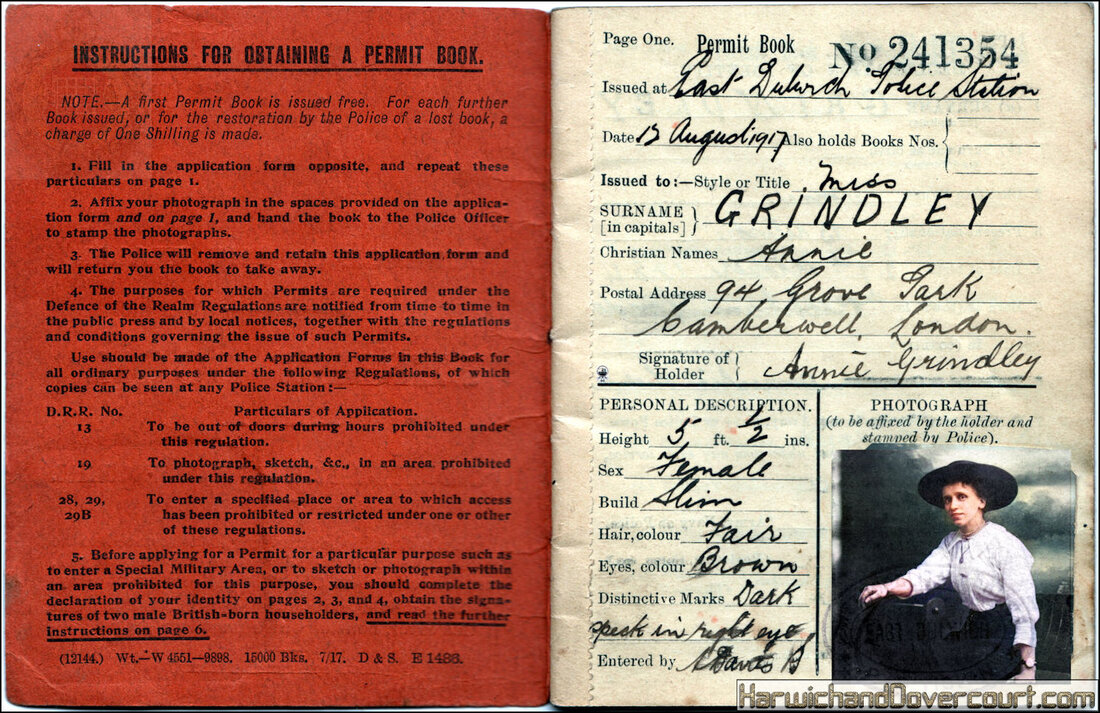 INSTRUCTIONS FOR OBTAINING A PERMIT BOOK.
NOTE.—A first Permit Book is issued free. For each further
Book issued, or for the restoration by the Police of a lost book, a
charge of One Shilling is made.
1. Fill in the application form opposite, and repeat these
particulars on page 1.
2. Affix your photograph in the spaces provided on the applica-
tion form and on page 1, and hand the book to the Police Officer
to stamp the photographs.
3. The Police will remove and retain this application form and
will return you the book to take away.
4. The purposes for which Permits are required under the
Defence of the Realm Regulations are notified from time to time in
the public press and by local notices, together with the regulations
and conditions governing the issue of such Permits.
Use should be made of the Application Forms in this Book for
all ordinary purposes under the following Regulations, of which
copies can be seen at any Police Station:—
D.R.R. No. Particulars of Application.
13 To be out of doors during hours prohibited under
this regulation.
19 To photograph, sketch, &c., in an area prohibited
under this regulation.
28, 29, To enter a specified place or area to which access
29B has been prohibited or restricted under one or other
of these regulations.
5. Before applying for a Permit for a particular purpose such as
to enter a Special Military Area, or to sketch or photograph within
an area prohibited for this purpose, you should complete the
declaration of your identity on pages 2, 3, and 4, obtain the signa-
tures of two male British-born householders, and read the further
instructions on page 6.
(12144.) Wt.—W 4551—9898. 15000 Bks. 7/17. D & S. E 1486.
Page One. Permit Book No. 241354
Issued at East Dulwich Police Station
Date August 1917 Also holds Books Nos.
Issued to:—Style or Title Miss
SURNAME GRINDLEY
[in capitals]
Christian Names Annie
Postal Address 94 Grove Park
Camberwell, London.
Signature of Holder Annie Grindley
PERSONAL DESCRIPTION.
Height 5 ft. ½ ins.
Sex Female
Build Slim
Hair, colour Fair
Eyes, colour Brown
Distinctive Marks Dark
speck in right eye,
Entered by
PHOTOGRAPH
(to be affixed by the holder and
stamped by Police).
EAST DULWICH
HarwichandDovercourt.com